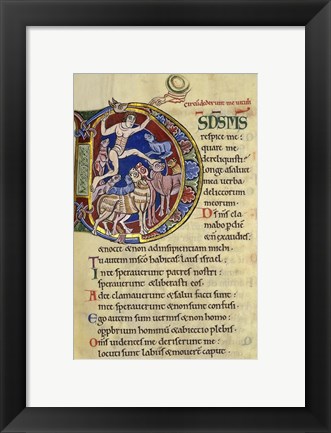 circūdederunt me uituli
S DS MS
respice me:
quare me
dereliquisti:
longe a salute
mea uerba
delictorum
meorum.
Ds ms cla
mabo p diē
& n exaudies:
& nocte & non ad insipientiam mihi.
Tu autem in scō habitas: laus israel.
In te sperauerunt patres nostri:
sperauerunt & liberasti eos.
Ad te clamauerunt & salui facti sunt:
in te sperauerunt & non sunt confusi.
Ego autem sum uermis & non homo:
opprbrium hominū & abiectio plebis.
Oms uidentes me deriserunt me:
locuti sunt labiis & mouer̄ caput.